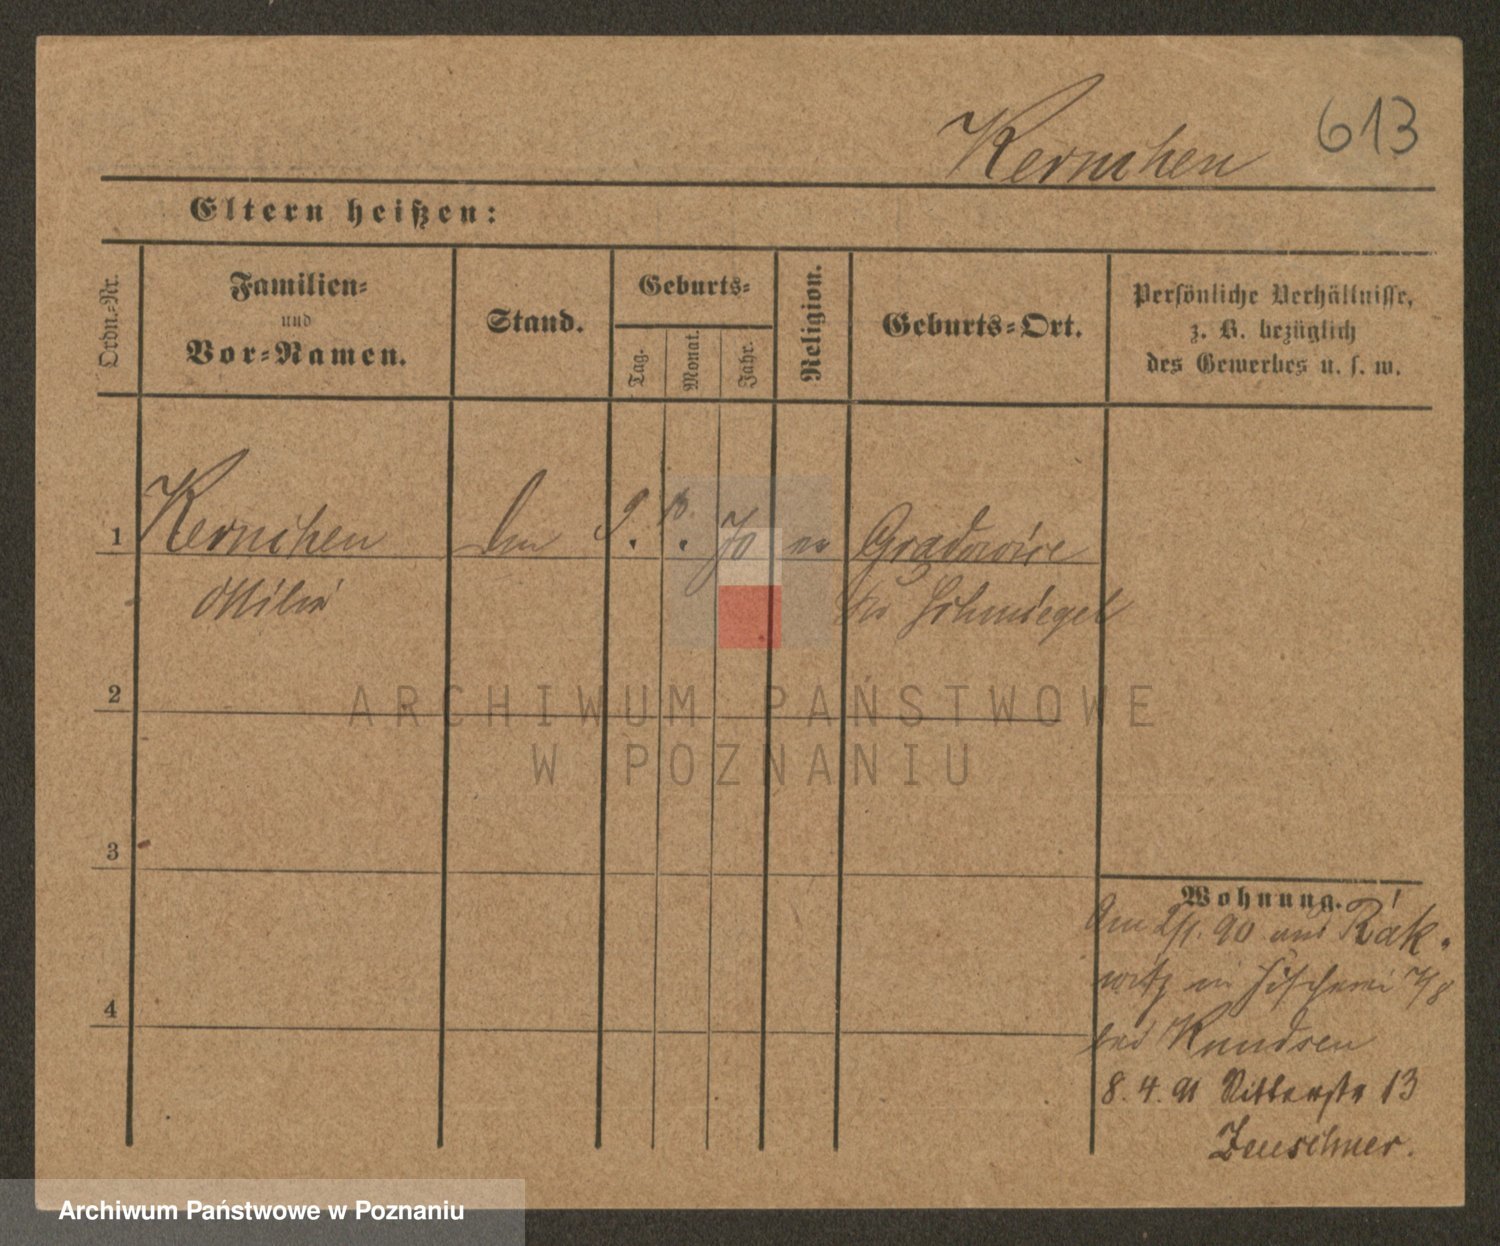 Kernchen 613
Eltern heißen:
Ordn.-Nr.
Familien-
und
Vor-Namen.
Stand.
Geburts-
Tag.
Monat.
Jahr.
Religion.
Geburts-Ort.
Persönliche Verhältnisse,
z. B. bezüglich
des Gewerbes u. s. w.
1 Kernchen 9. 70 ev Gradowice
Ottilie Kr Schmiegel
2
ARCHIWUM PAŃSTWOWE
W POZNANIU
3
4
Wohnung.
Am 2/1. 90 aus Rak-
witz in Fischerei 7/8
bei Knudsen
8. 4. 91 Ritterstr 13
Zeuschner.
Archiwum Państwowe w Poznaniu